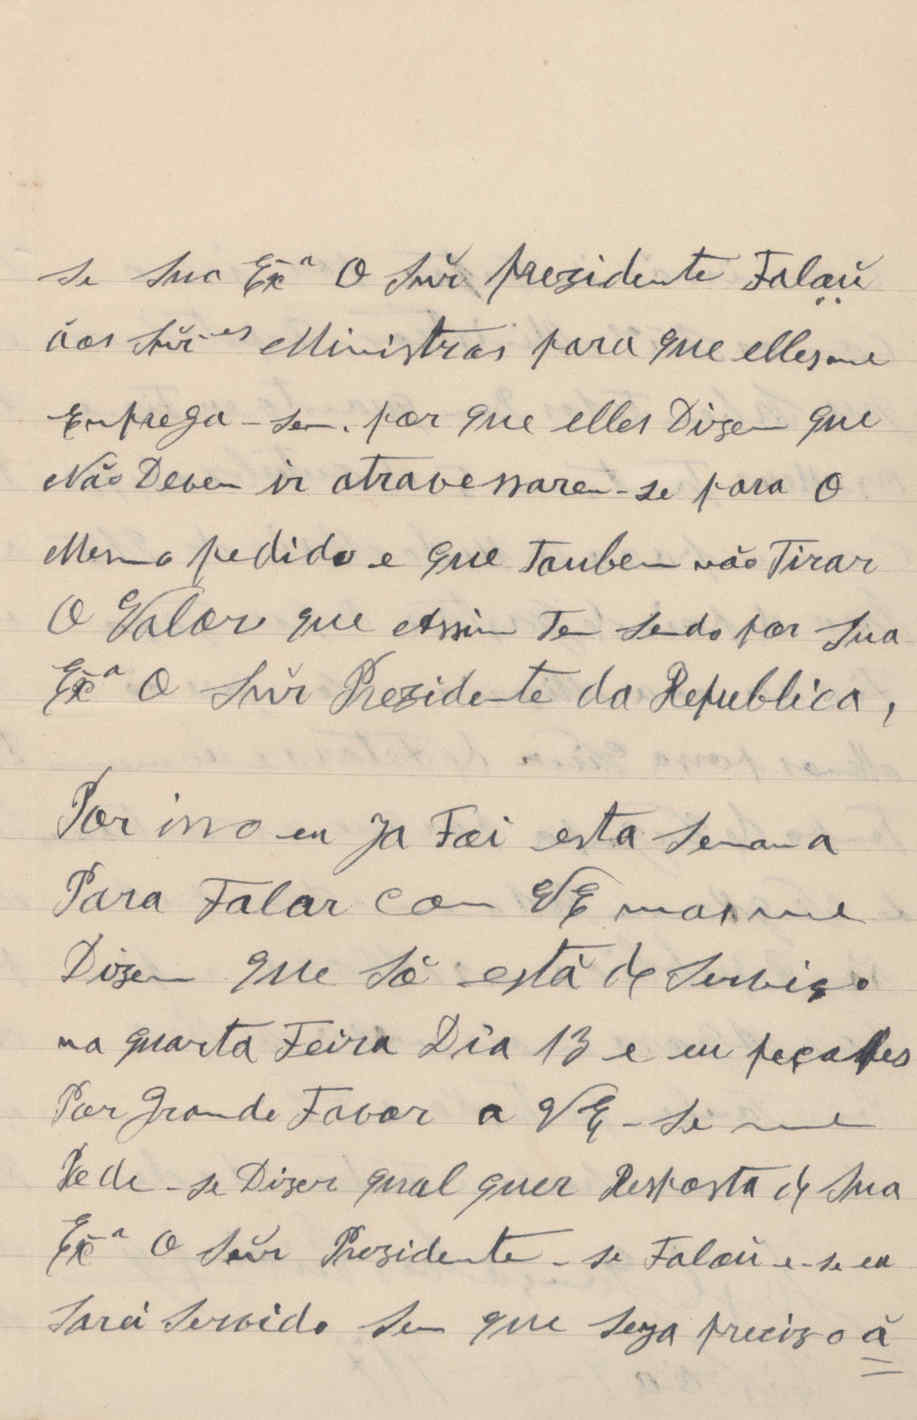 se sua Exª O Snr prezidente Falou
áos Snr.es Ministros para que elles me
Emprega-sem. por que elles Dizem que
Não Devem ir atravessarem-se para O
Mesmo pedido e que Taubem não Tirar
O Valor que Assim Tem sendo por Sua
Exª O Snr Prezidente da Republica,
Por isso eu Ja Foi esta semana
Para Falar com VE mas me
Dizem que Só está de serviço
na quarta Feira Dia 13 e eu peça
Por Grande Favor a VE-se me
Pode-se Dizer qual quer Resposta de Sua
Exª O Snr Prezidente-se Falou e-se eu
Sarei Servido Sem que seza precizo á